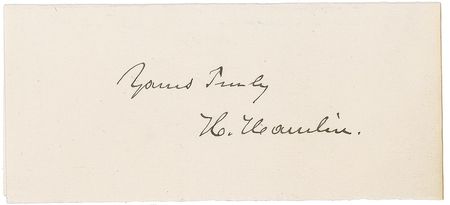 Yours Truly
H. Hamlin.